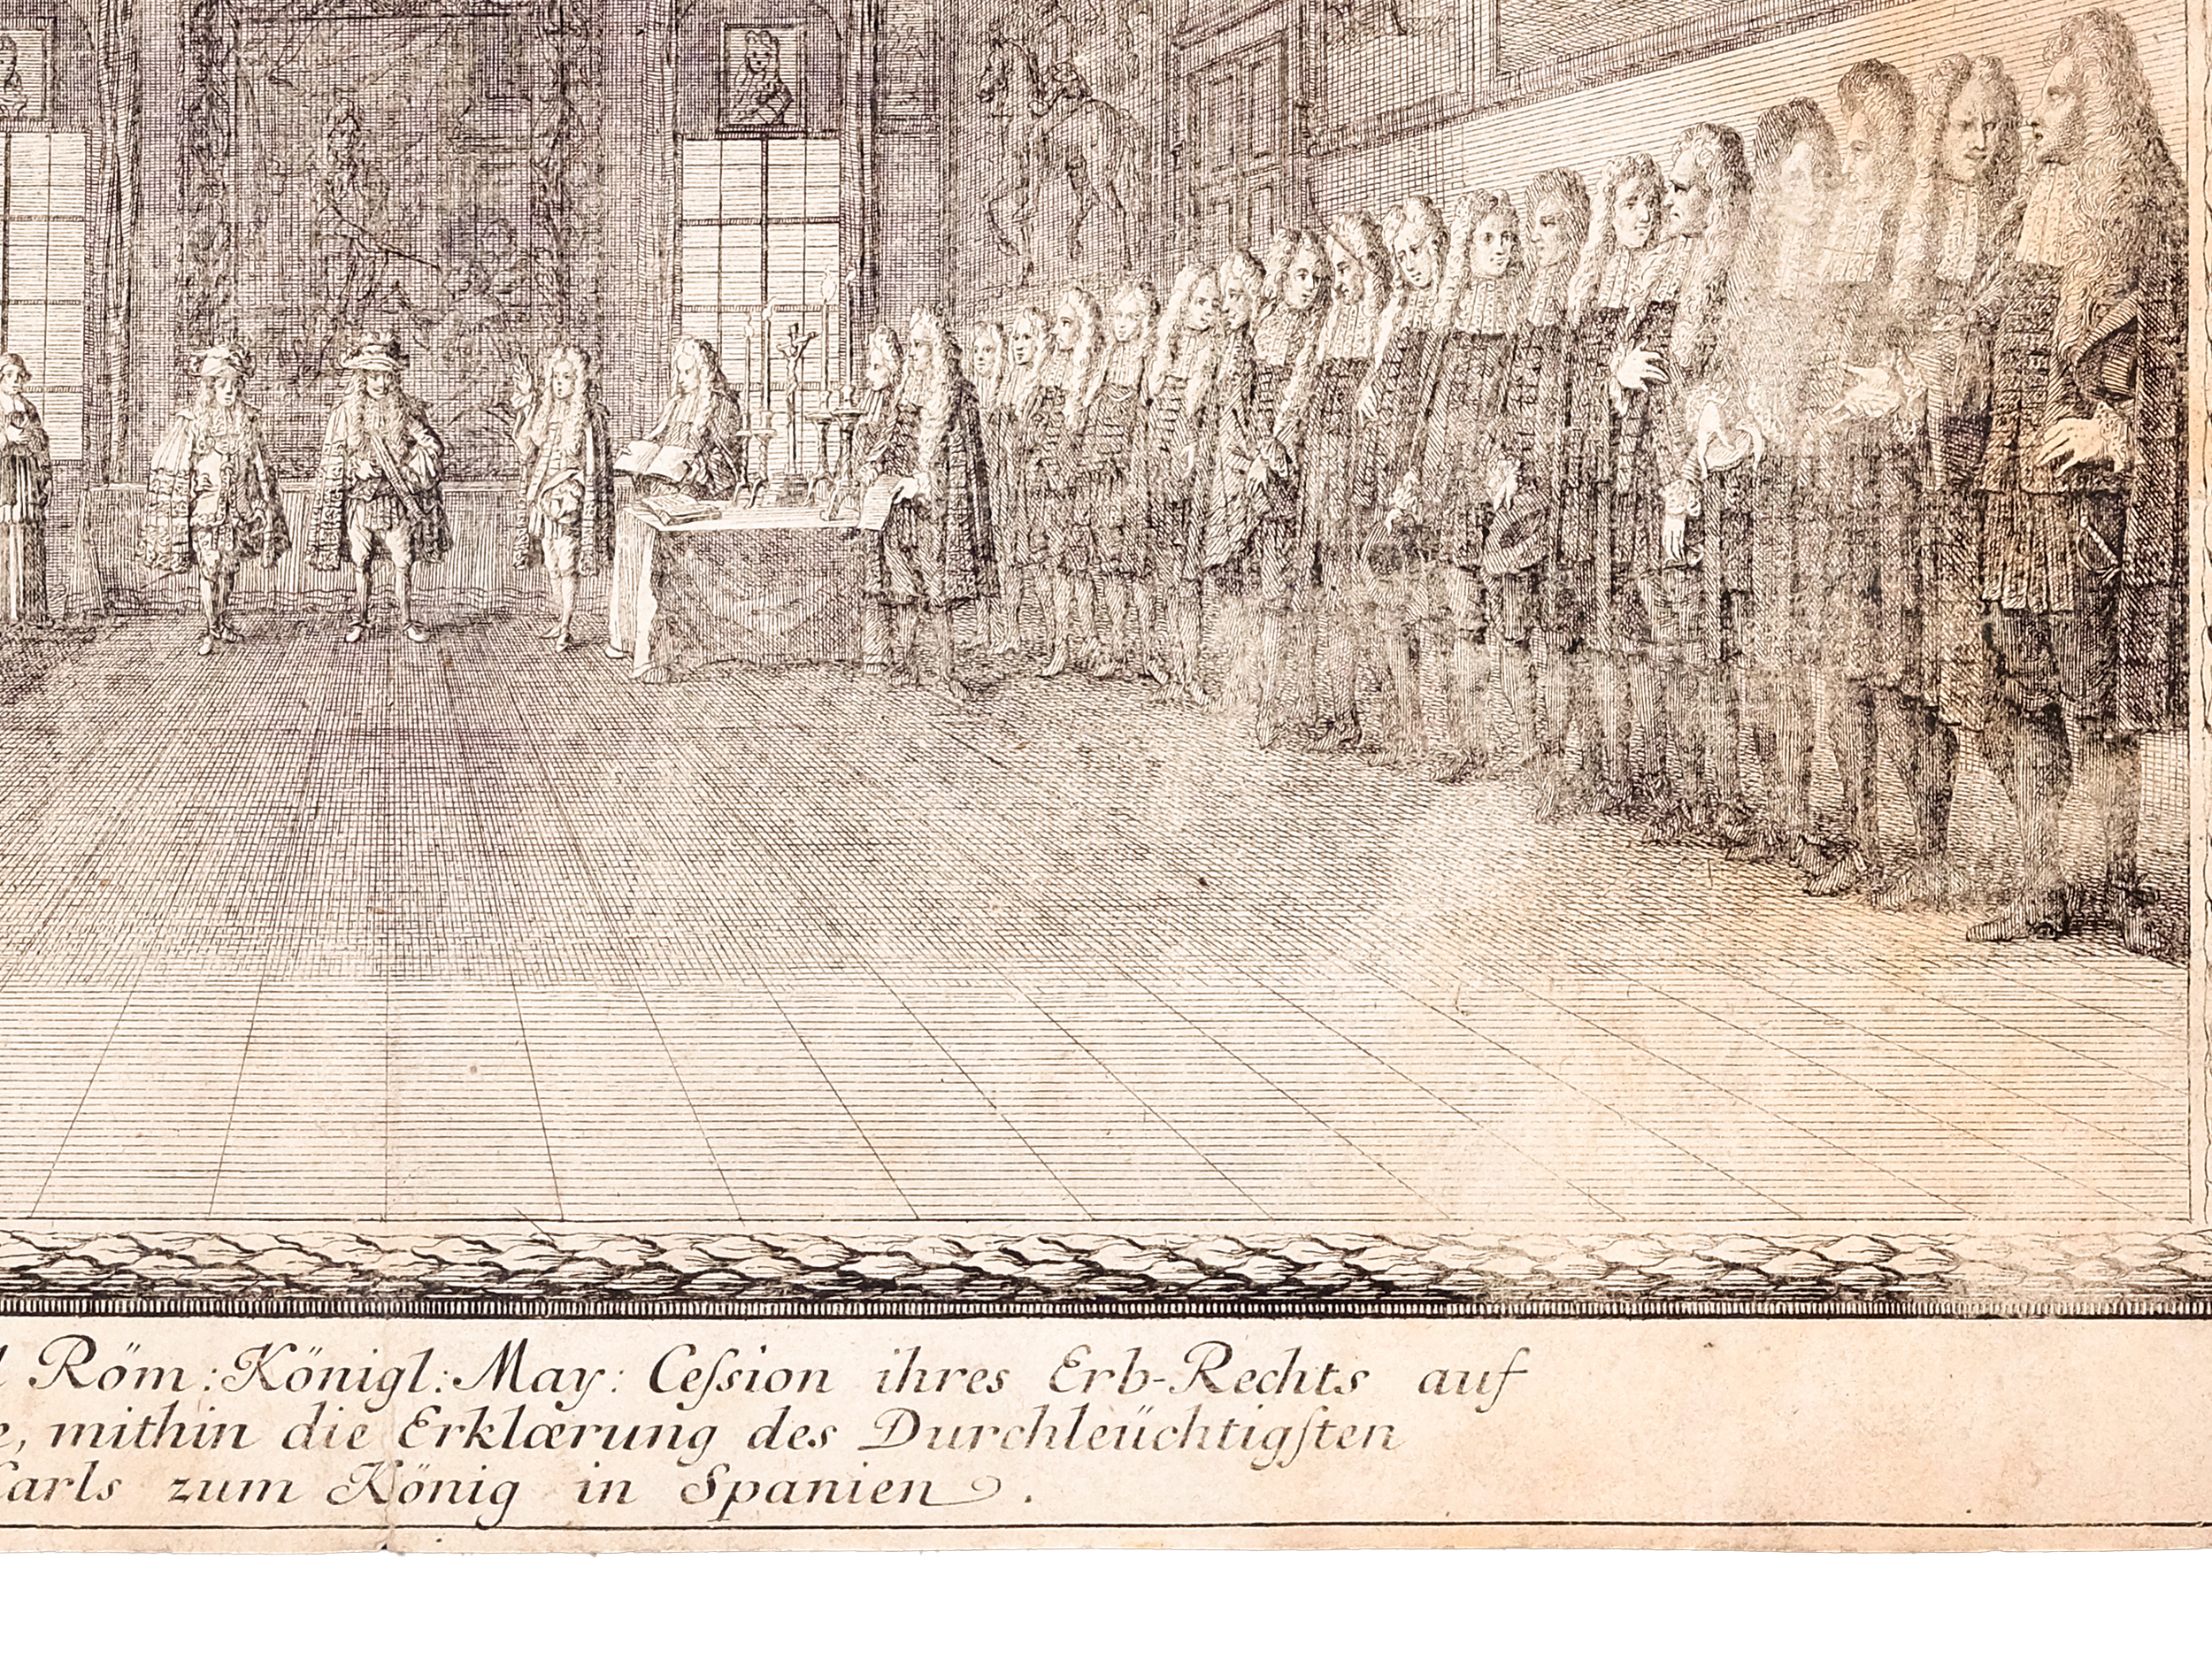 Röm: Königl: May: Ceſsion ihres Erb-Rechts auf
mithin die Erklærung des Durchleüchtigſten
Carls zum König in Spanien.